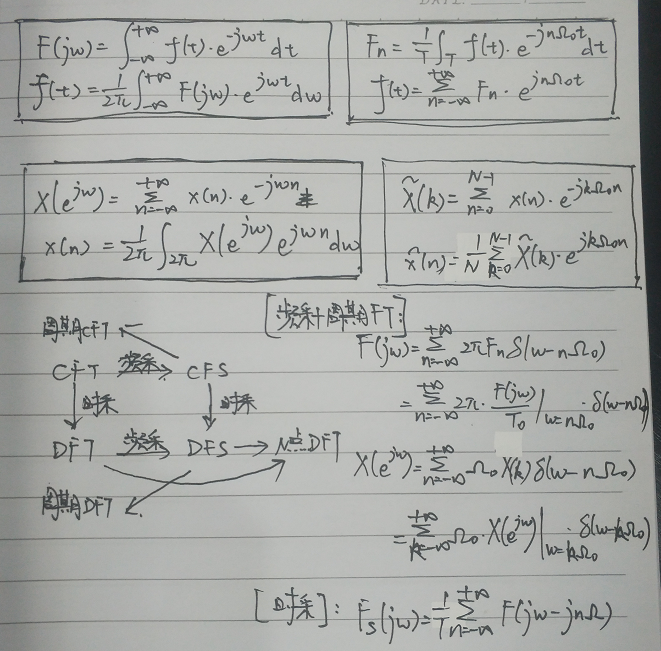 F(jω) = ∫_{-∞}^{+∞} f(t)·e^{-jωt} dt
f(t) = 1/2π ∫_{-∞}^{+∞} F(jω)·e^{jωt} dω
F_n = 1/T ∫_T f(t)·e^{-jnΩ₀t} dt
f(t) = Σ_{n=-∞}^{+∞} F_n·e^{jnΩ₀t}
X(e^{jω}) = Σ_{n=-∞}^{+∞} x(n)·e^{-jωn}
x(n) = 1/2π ∫_{2π} X(e^{jω}) e^{jωn} dω
X̃(k) = Σ_{n=0}^{N-1} x(n)·e^{-jkΩ₀n}
x̃(n) = 1/N Σ_{k=0}^{N-1} X̃(k)·e^{jkΩ₀n}
周期CFT
CFT 频采 CFS
时采 时采
DFT 频采 DFS → N点DFT
周期DFT
[频采+周期FT:
F(jω) = Σ_{n=-∞}^{+∞} 2πF_n δ(ω-nΩ₀)
= Σ_{n=-∞}^{+∞} 2π· F(jω)/T₀ |_{ω=nΩ₀}·δ(ω-nΩ₀)
X(e^{jω}) = Σ_{n=-∞}^{+∞} Ω₀ X(k) δ(ω-nΩ₀)
= Σ_{k=-∞}^{+∞} Ω₀·X(e^{jω})|_{ω=kΩ₀}·δ(ω-kΩ₀)
[时采]: F_s(jω) = 1/T Σ_{n=-∞}^{+∞} F(jω-jnΩ)